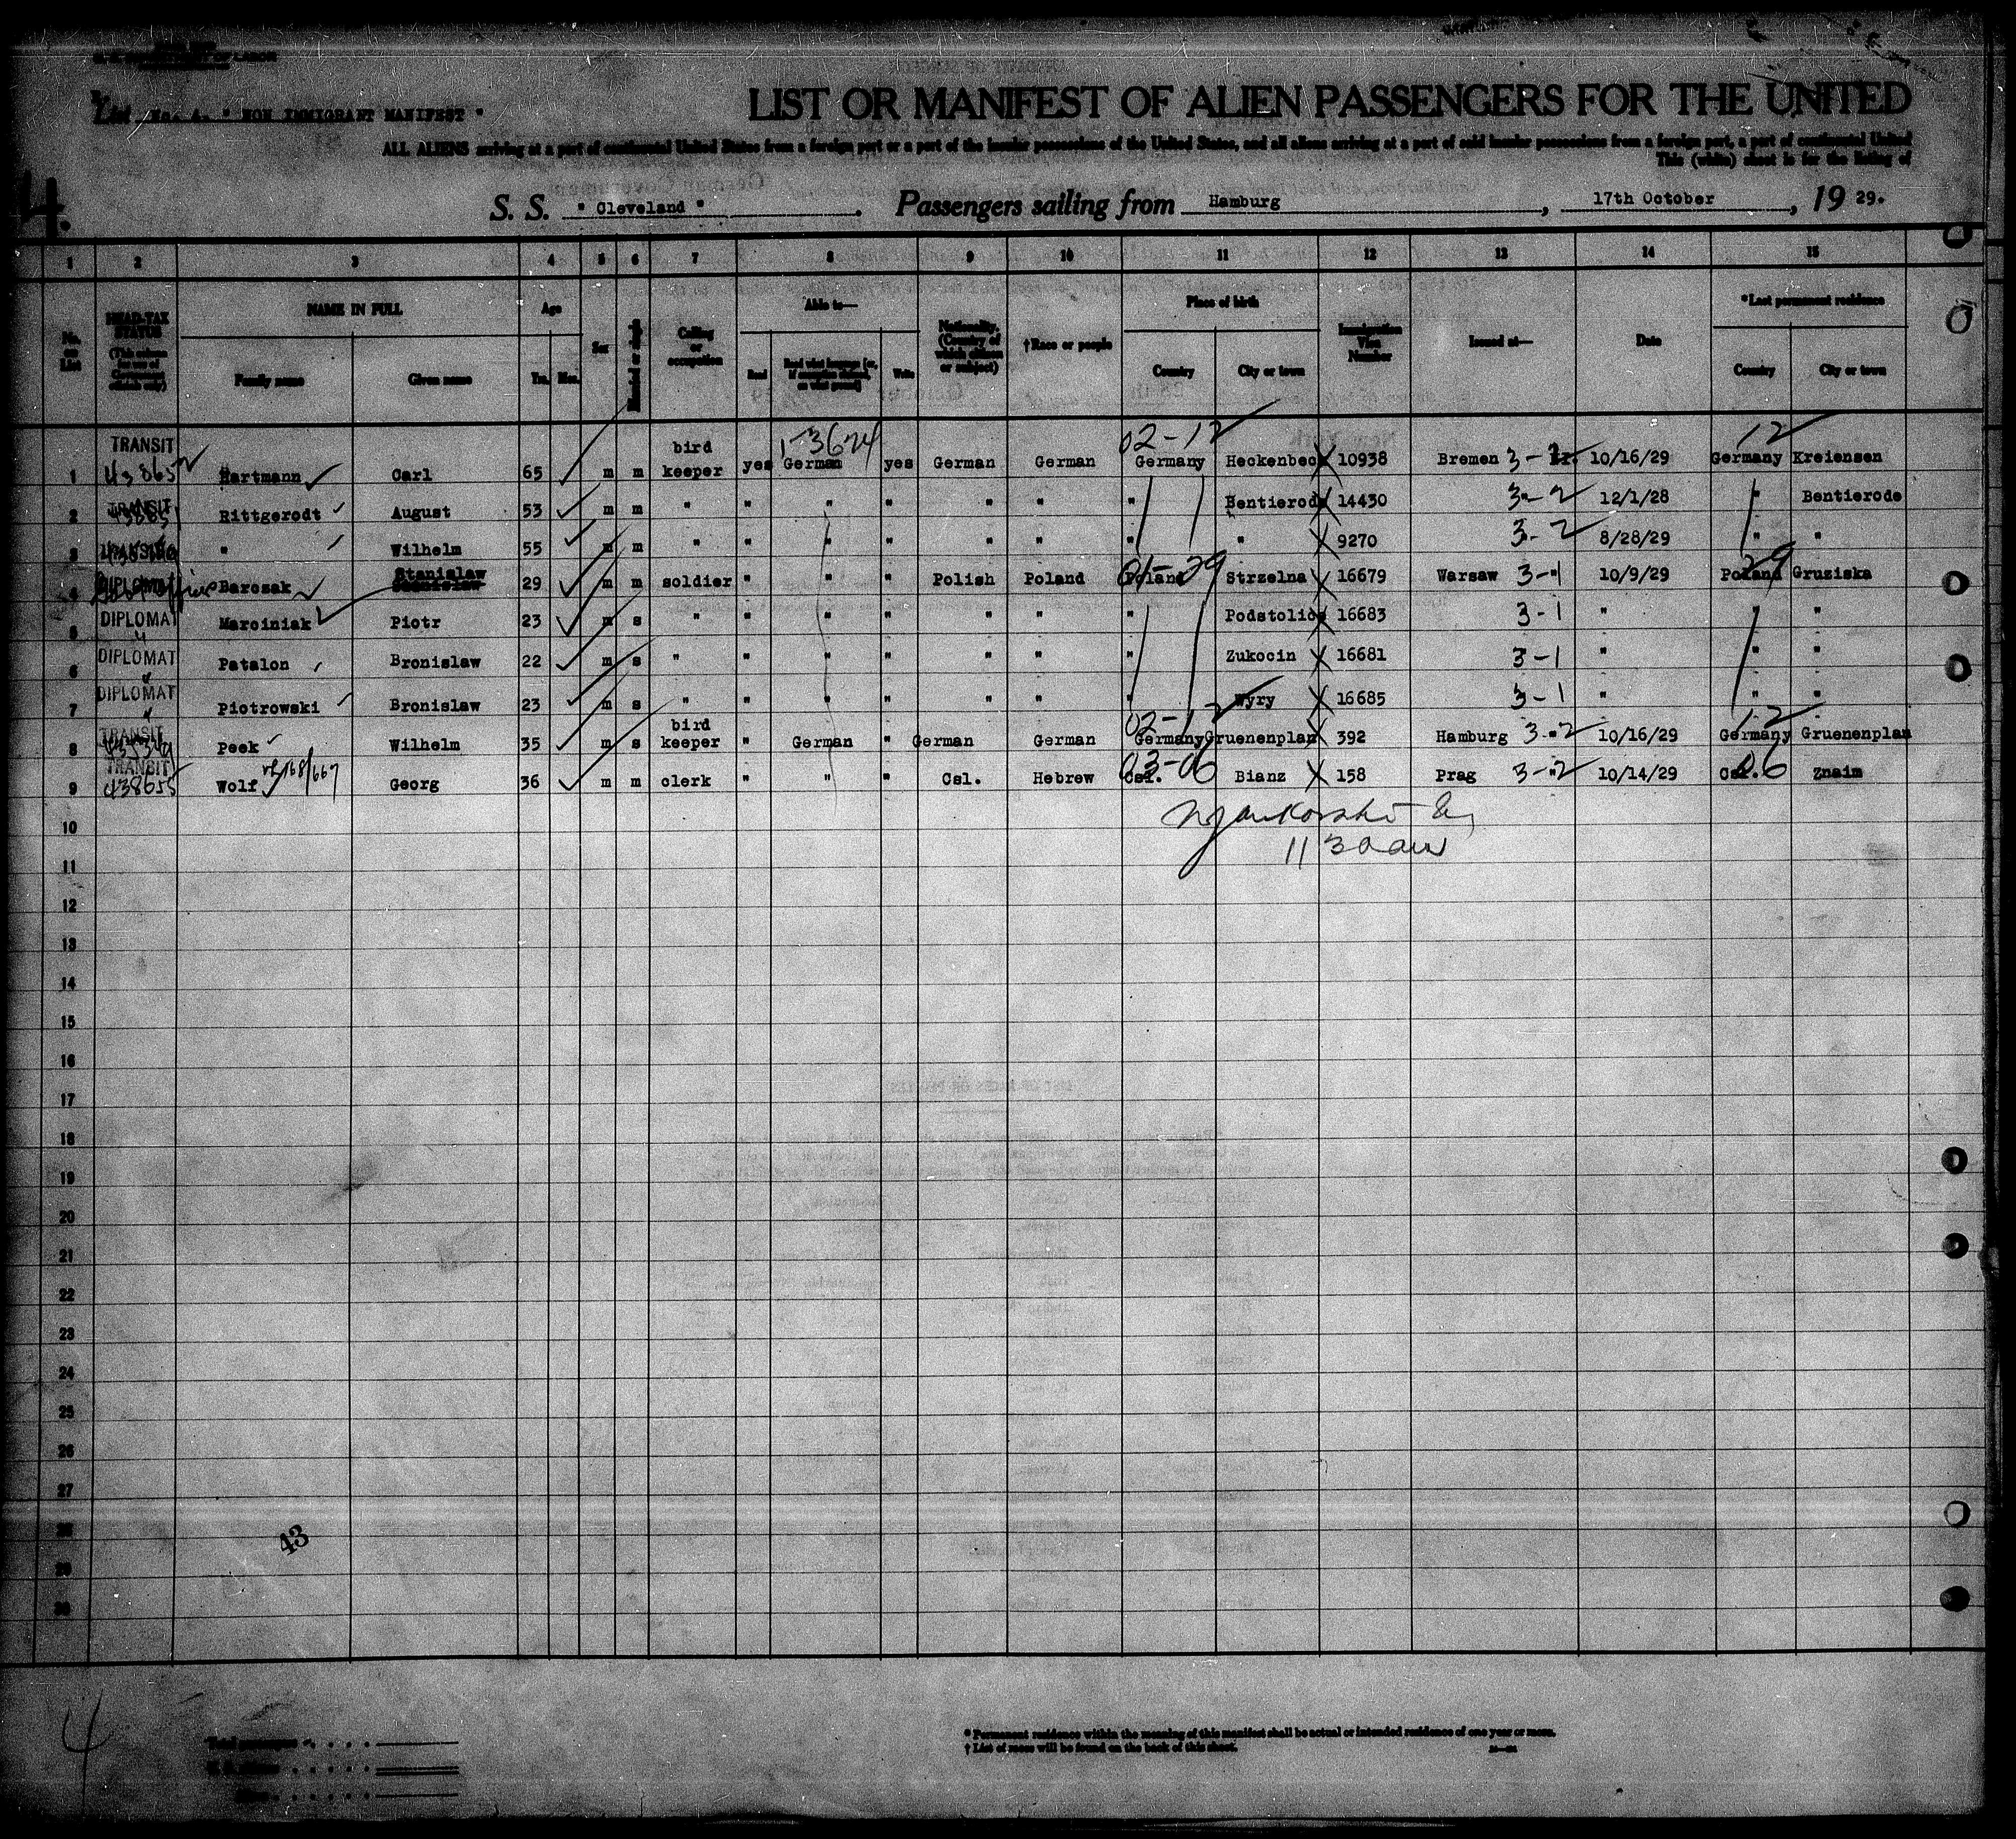 List No. 4. " NON IMMIGRANT MANIFEST "
LIST OR MANIFEST OF ALIEN PASSENGERS FOR THE UNITED
ALL ALIENS arriving at a port of continental United States from a foreign port or a port of the insular possessions of the United States, and all aliens arriving at a port of said insular possessions from a foreign port, a port of continental United
This (white) sheet is for the listing of
4.
S. S. " Cleveland " . Passengers sailing from Hamburg , 17th October , 19 29.
1 2 3 4 5 6 7 8 9 10 11 12 13 14 15
No. on List
HEAD-TAX STATUS (This column for use of Government officials only)
NAME IN FULL
Family name Given name
Age
Yrs. Mos.
Sex
Married or single
Calling or occupation
Able to—
Read Read what language (or, if exemption claimed, on what ground) Write
Nationality. (Country of which citizen or subject)
†Race or people
Place of birth
Country City or town
Immigration Visa Number
Issued at—
Date
*Last permanent residence
Country City or town
1-3674 02-12 12
1 TRANSIT 43865 Hartmann Carl 65 m m bird keeper yes German yes German German Germany Heckenbeck 10938 Bremen 3-2 10/16/29 Germany Kreiensen
2 TRANSIT Rittgerodt August 53 m m " " " " " " " Bentierode 14430 3-2 12/1/28 " Bentierode
3 " Wilhelm 55 m m " " " " " " " " 9270 3-2 8/28/29 " "
4 DIPLOMAT Barczak Stanislaw 29 m m soldier " " " Polish Poland Poland Strzelna 16679 Warsaw 3-1 10/9/29 Poland Gruziska
5 DIPLOMAT Marciniak Piotr 23 m s " " " " " " " Podstolice 16683 3-1 " " "
6 DIPLOMAT Patalon Bronislaw 22 m s " " " " " " " Zukocin 16681 3-1 " " "
7 DIPLOMAT Piotrowski Bronislaw 23 m s " " " " " " " Wyry 16685 3-1 " " "
02-12 12
8 TRANSIT Peek Wilhelm 35 m s bird keeper " German " German German Germany Gruenenplan 392 Hamburg 3-2 10/16/29 Germany Gruenenplan
9 TRANSIT 438655 Wolf Georg 36 m m clerk " " " Csl. Hebrew Csl. 03-06 Bianz 158 Prag 3-2 10/14/29 Csl. 06 Znaim
10
11 30 am
11
12
13
14
15
16
17
18
19
20
21
22
23
24
25
26
27
28
43
29
30
4
Total passengers
* Permanent residence within the meaning of this manifest shall be actual or intended residence of one year or more.
† List of races will be found on the back of this sheet.